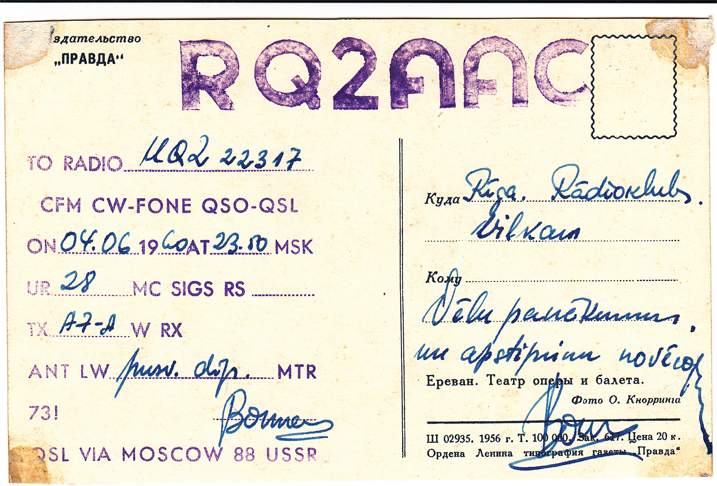 здательство
„ПРАВДА“
RQ2AAC
TO RADIO UQ2 22317
CFM CW-FONE QSO-QSL
ON 04.06 1960 AT 23.50 MSK
UR 28 MC SIGS RS
TX A7-A W RX
ANT LW pusv. dip. MTR
73!
QSL VIA MOSCOW 88 USSR
Куда Rīga. Rādioklubs.
Vilkam
Кому
Vēlu panākumus.
un apstiprinu
Ереван. Театр оперы и балета.
Фото О. Кнорринга
Ш 02935. 1956 г. Т. 100 000. Зак. 627. Цена 20 к.
Ордена Ленина типография газеты „Правда“